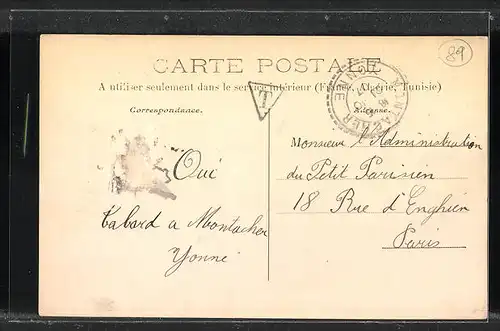 89
CARTE POSTALE
A utiliser seulement dans le service intérieur (France, Algérie, Tunisie)
Correspondance.
Adresse.
T
MONTACHER
YONNE
Oui
Tabard a Montacher
Yonne
Monsieur l'Administration
du Petit Parisien
18 Rue d'Enghien
Paris